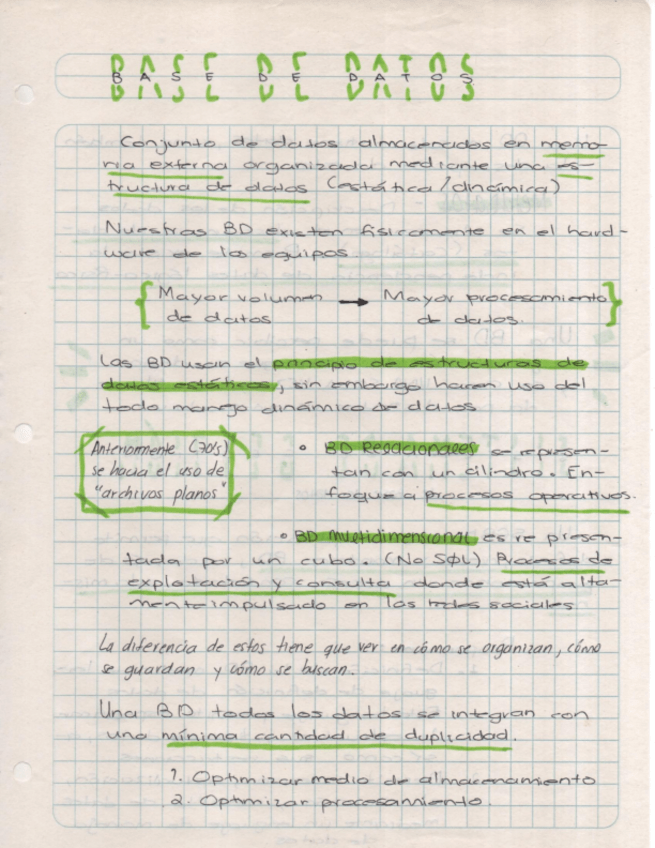 BASE DE DATOS
Conjunto de datos almacenados en memo-
ria externa organizada mediante una es-
tructura de datos (estática/dinámica)
Nuestras BD existen físicamente en el hard-
ware de los equipos.
{ Mayor volumen → Mayor procesamiento }
de datos de datos.
Las BD usan el principio de estructuras de
datos estáticas, sin embargo hacen uso del
todo manejo dinámico de datos
Anteriormente (70's)
se hacía el uso de
"archivos planos"
• BD Relacionales se represen-
tan con un cilindro. En-
foque a procesos operativos.
• BD multidimensional es represen-
tada por un cubo. (No SQL) Procesos de
explotación y consulta donde está alta-
mente impulsado en las redes sociales
La diferencia de estos tiene que ver en cómo se organizan, cómo
se guardan y cómo se buscan.
Una BD todos los datos se integran con
una mínima cantidad de duplicidad.
1. Optimizar medio de almacenamiento
2. Optimizar procesamiento.